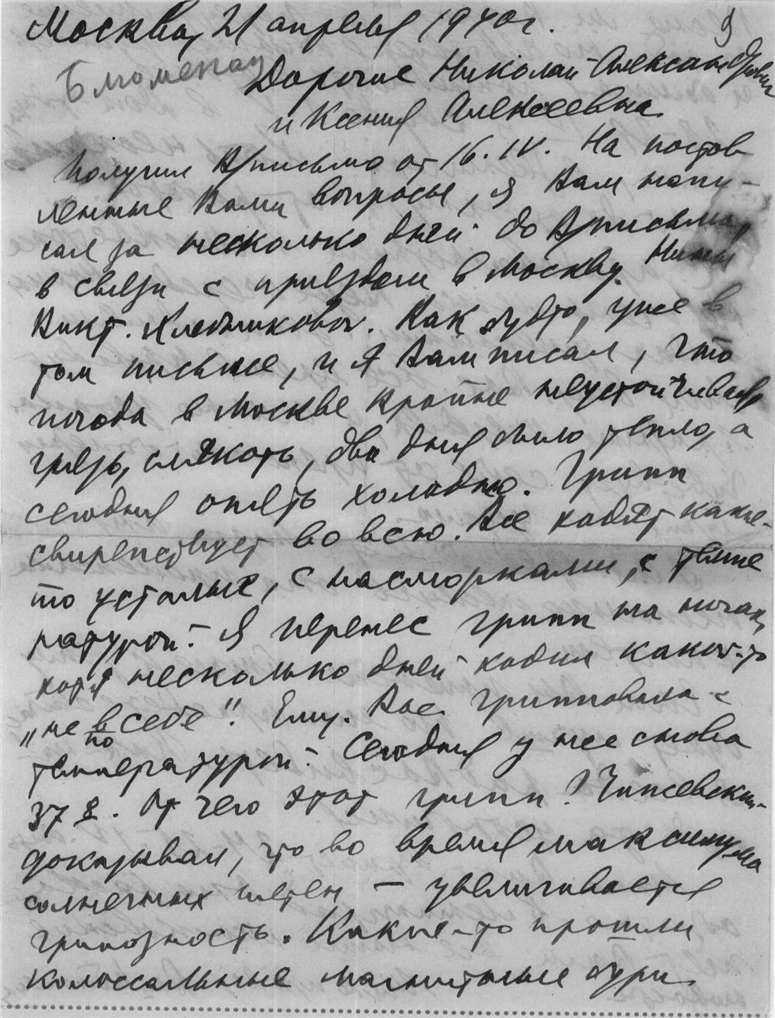 Москва, 21 апреля 1940 г. 9
Дорогие Николай Александрович
и Ксения Алексеевна
Получил В/письмо от 16.IV. На постав-
ленные Вами вопросы, я Вам напи-
сал за несколько дней до В/письма,
в связи с приездом в Москву Нины
Викт. Хлебниковой. Как будто, уже в
том письме, и я Вам писал, что
погода в Москве крайне неустойчивая
грязь, слякоть, два дня было тепло, а
сегодня опять холодно. Грипп
свирепствует во всю. Все ходят какие-
то усталые, с насморками, с темпе
ратурой. Я перенес грипп на ногах,
хотя несколько дней ходил какой-то
„не по в себе". Вас. грипповала с
температурой. Сегодня у нее снова
37 2. От чего этот грипп? Чижевский
доказывал, что во время максимума
солнечных пятен — увеличивается
грипозность. Какие-то прошли
колоссальные магнитные бури.